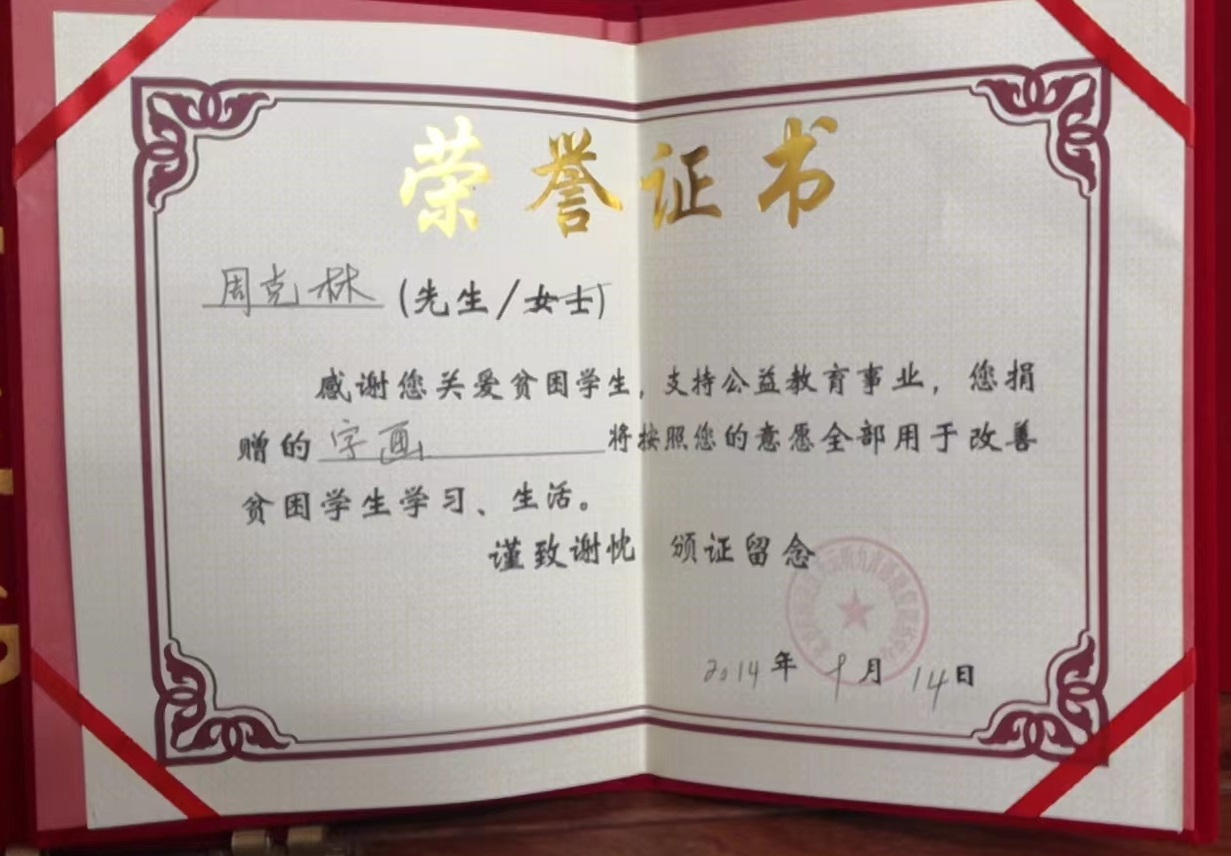 荣誉证书
周克林(先生/女士)
感谢您关爱贫困学生,支持公益教育事业,您捐
赠的字画将按照您的意愿全部用于改善
贫困学生学习、生活。
谨致谢忱 颁证留念
2014年9月14日